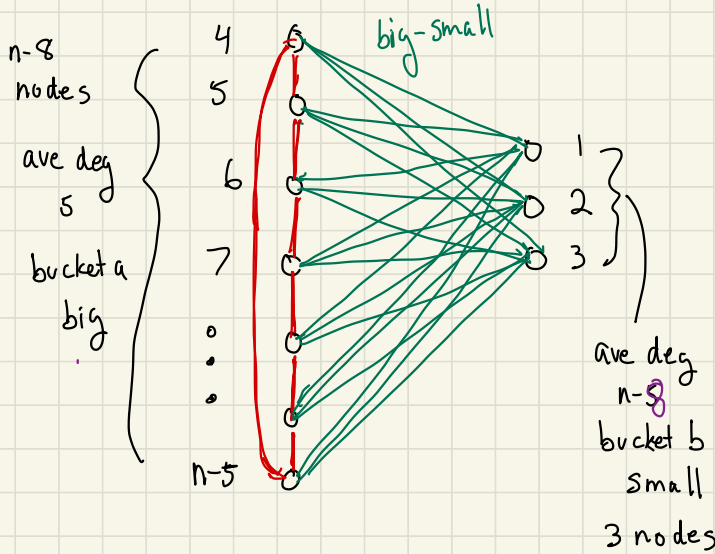 n-8
nodes
ave deg
5
bucket a
big
4
5
6
7
n-5
big-small
1
2
3
ave deg
n-8
bucket b
small
3 nodes